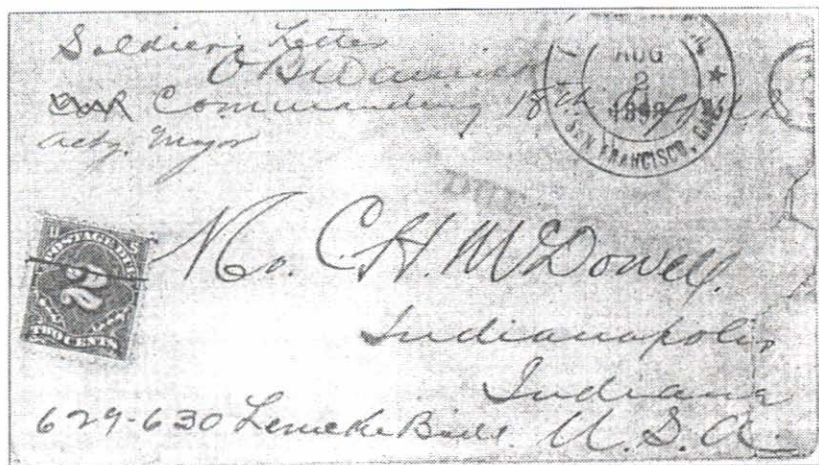 Soldiers Letter
O B Warwick
Commanding 18th
actg. Major
AUG
2
SAN FRANCISCO, CAL.
DUE
U S
POSTAGE DUE
2
TWO CENTS
Mr. C. H. McDowell.
Indianapolis
Indiana
629-630 Lemcke Build. U. S. A.